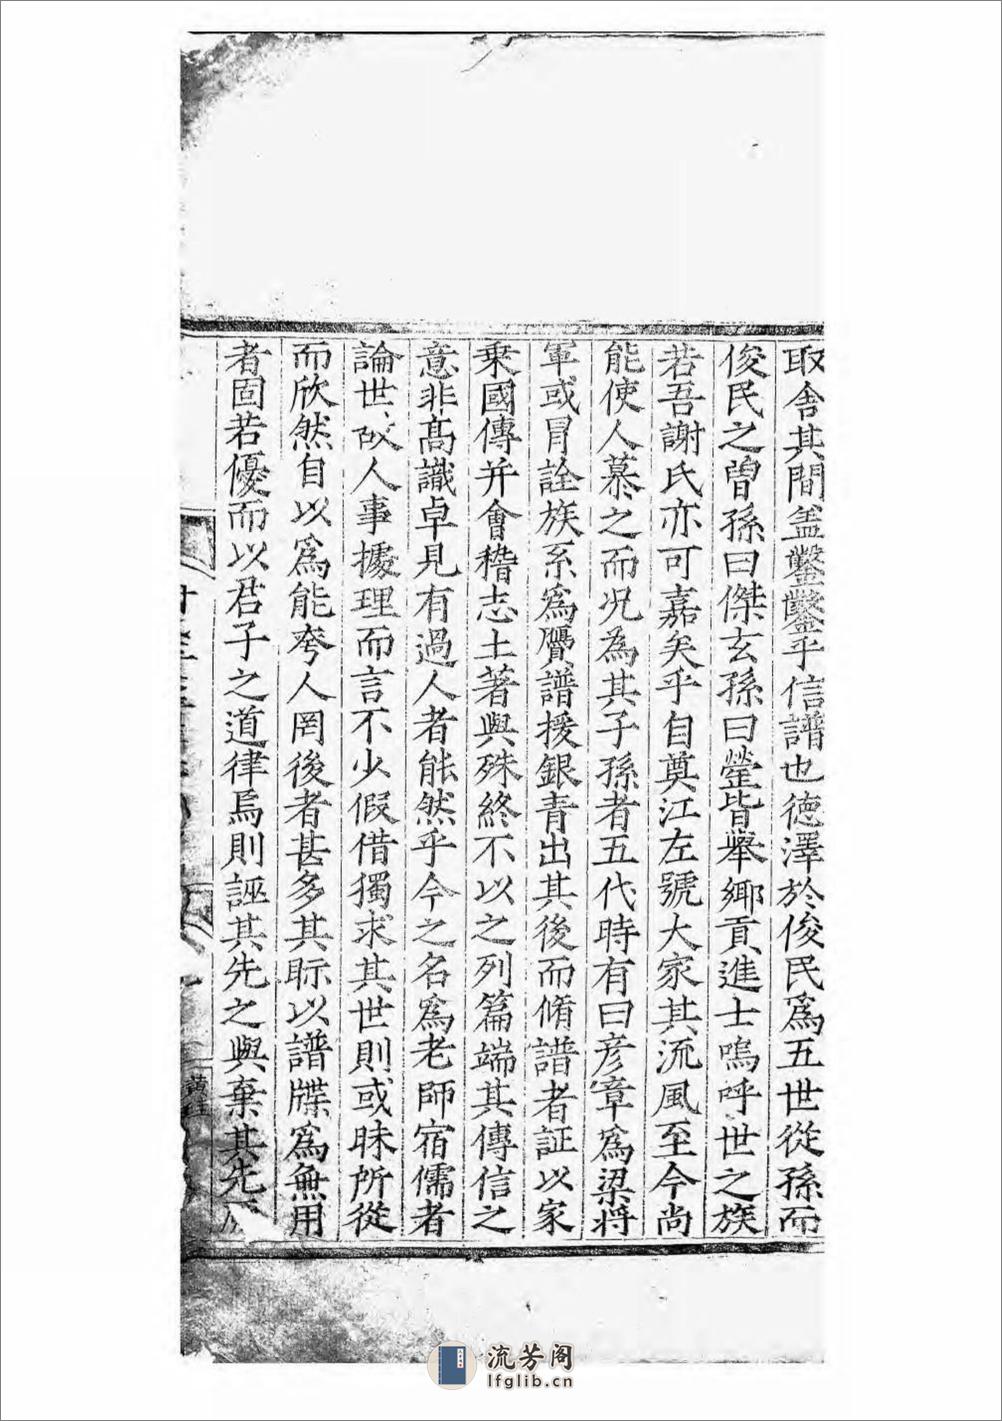 取舍其間盖鑿鑿乎信譜也德澤於俊民爲五世從孫而
俊民之曾孫曰傑玄孫曰瑩皆舉鄉貢進士嗚呼世之族
若吾謝氏亦可嘉矣乎自奠江左號大家其流風至今尚
能使人慕之而况為其子孫者五代時有曰彦章爲梁將
軍或冒詮族系爲贋譜援銀青出其後而脩譜者証以家
乗國傳并會稽志土著與殊終不以之列篇端其傳信之
意非高識卓見有過人者能然乎今之名爲老師宿儒者
論世故人事據理而言不少假借獨求其世則或昧所從
而欣然自以爲能夸人罔後者甚多其眎以譜牒爲無用
者固若優而以君子之道律焉則誣其先之與棄其先
黄
流芳阁
lfglib.cn